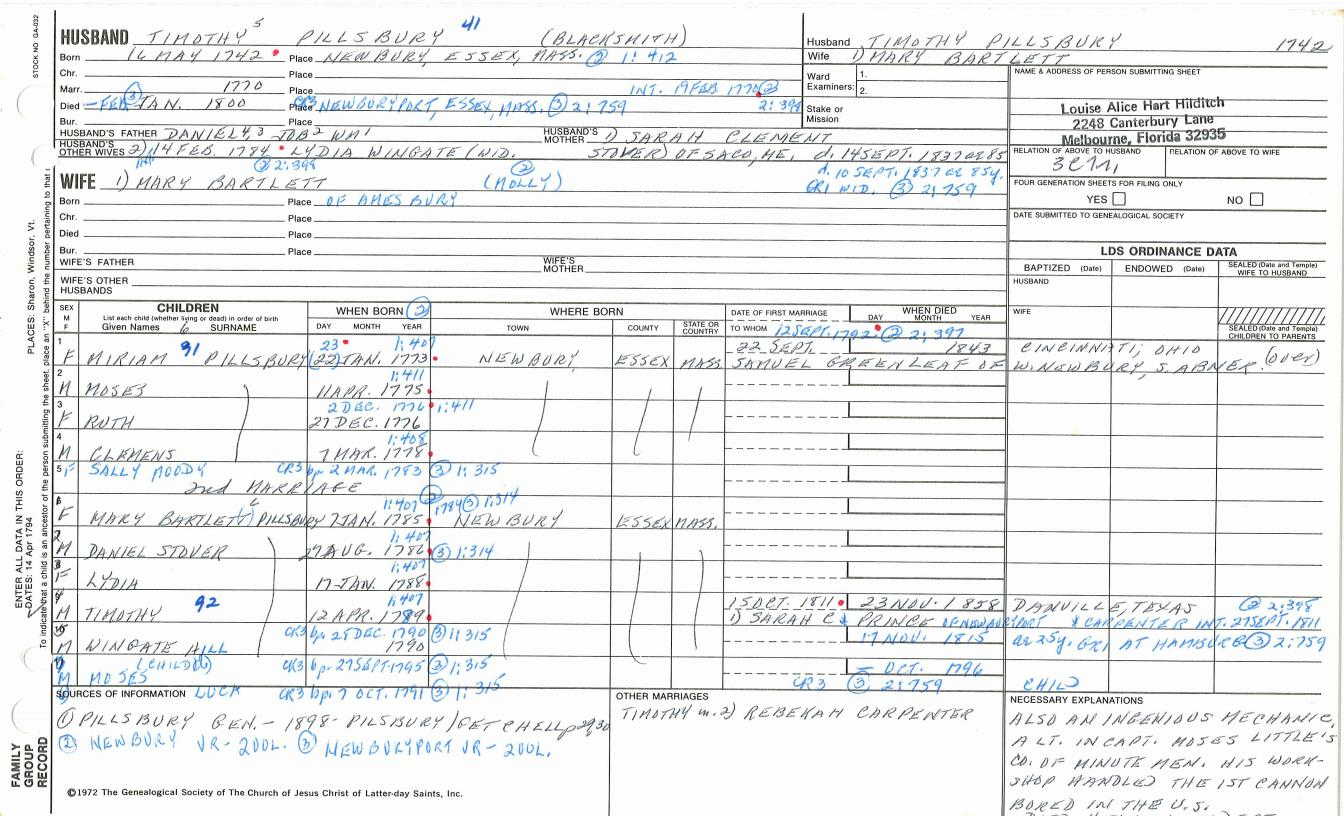 STOCK NO. GA-032
PLACES: Sharon, Windsor, Vt.
ENTER ALL DATA IN THIS ORDER:
DATES: 14 Apr 1794
To indicate that a child is an ancestor of the person submitting the sheet, place an "X" behind the number pertaining to that
FAMILY GROUP RECORD
HUSBAND TIMOTHY 5 PILLSBURY 41 (BLACKSMITH)
Born 16 MAY 1742 Place NEWBURY, ESSEX, MASS. ② 1:412
Chr. Place
Marr. 1770 Place INT. 19 FEB 1770 ② 2:394
Died – FEB ③ JAN. 1800 Place CR3 NEWBURYPORT, ESSEX, MASS. ③ 2:759
Bur. Place
HUSBAND'S FATHER DANIEL 4, 3 JOB 2 WM 1 HUSBAND'S MOTHER 1) SARAH CLEMENT
HUSBAND'S OTHER WIVES 2) 14 FEB. 1784 LYDIA WINGATE (WID. STOVER) OF SACO, ME. d. 14 SEPT. 1837 ae 85
② 2:394 d. 10 SEPT. 1837 ae 85y.
GR1 WID. ③ 2:759
WIFE 1) MARY BARTLETT ② (MOLLY)
Born Place OF AMESBURY
Chr. Place
Died Place
Bur. Place
WIFE'S FATHER WIFE'S MOTHER
WIFE'S OTHER HUSBANDS
Husband TIMOTHY PILLSBURY 1742
Wife 1) MARY BARTLETT
Ward Examiners: 1.
2.
Stake or Mission
NAME & ADDRESS OF PERSON SUBMITTING SHEET
Louise Alice Hart Hilditch
2248 Canterbury Lane
Melbourne, Florida 32935
RELATION OF ABOVE TO HUSBAND RELATION OF ABOVE TO WIFE
FOUR GENERATION SHEETS FOR FILING ONLY
YES NO
DATE SUBMITTED TO GENEALOGICAL SOCIETY
LDS ORDINANCE DATA
BAPTIZED (Date) ENDOWED (Date) SEALED (Date and Temple) WIFE TO HUSBAND
HUSBAND
WIFE
SEALED (Date and Temple) CHILDREN TO PARENTS
SEX M F CHILDREN WHEN BORN ② WHERE BORN DATE OF FIRST MARRIAGE WHEN DIED
List each child (whether living or dead) in order of birth
Given Names 6 SURNAME DAY MONTH YEAR TOWN COUNTY STATE OR COUNTRY TO WHOM DAY MONTH YEAR
12 SEPT. 1792 ② 2:397
23 1:407 22 SEPT. 1843 CINCINNATI, OHIO (over)
1 F MIRIAM 91 PILLSBURY (22) JAN. 1773 NEWBURY, ESSEX MASS. SAMUEL GREENLEAF OF W. NEWBURY, S. ABNER
1:411
2 M MOSES 11 APR. 1775
2 DEC. 1776 1:411
3 F RUTH 27 DEC. 1776
1:408
4 M CLEMENS 7 MAR. 1778
5 F SALLY MOODY CR3 bp. 2 MAR. 1783 ③ 1:315
2nd MARRIAGE
1:407 ② 1784 ③ 1:314
F MARY BARTLETT 6 PILLSBURY 7 JAN. 1785 NEWBURY ESSEX MASS.
1:407
M DANIEL STOVER 27 AUG. 1786 ③ 1:314
1:407
F LYDIA 17 JAN. 1788
92 1:407 15 OCT. 1811 23 NOV. 1858 DANVILLE, TEXAS ② 2:398
M TIMOTHY 12 APR. 1789 1) SARAH C. PRINCE OF NEWBURYPORT & CARPENTER INT. 27 SEPT. 1811
CR3 bp. 25 DEC. 1790 ③ 1:315
M WINGATE HILL 1790 17 NOV. 1815 ae 25y. GR1 ③ 2:759
CR3 bp. 27 SEPT 1795 ③ 1:315 – OCT. 1796
M MOSES CR3 ③ 2:759 CHILD
LUCK CR3 bp. 7 OCT. 1791 ③ 1:315
SOURCES OF INFORMATION
① PILLSBURY GEN. – 1898 – PILSBURY/GETCHELL
② NEWBURY VR – 2 VOL. ③ NEWBURYPORT VR – 2 VOL.
©1972 The Genealogical Society of The Church of Jesus Christ of Latter-day Saints, Inc.
OTHER MARRIAGES
TIMOTHY m. 2) REBEKAH CARPENTER
NECESSARY EXPLANATIONS
ALSO AN INGENIOUS MECHANIC,
A LT. IN CAPT. MOSES LITTLE'S
CO. OF MINUTE MEN. HIS WORK-
SHOP HANDLED THE 1ST CANNON
BORED IN THE U.S.